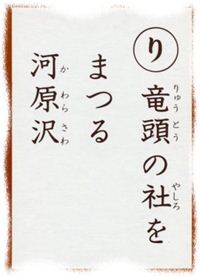 り 竜頭の社を
りゅうとう やしろ
まつる
河原沢
かわらさわ